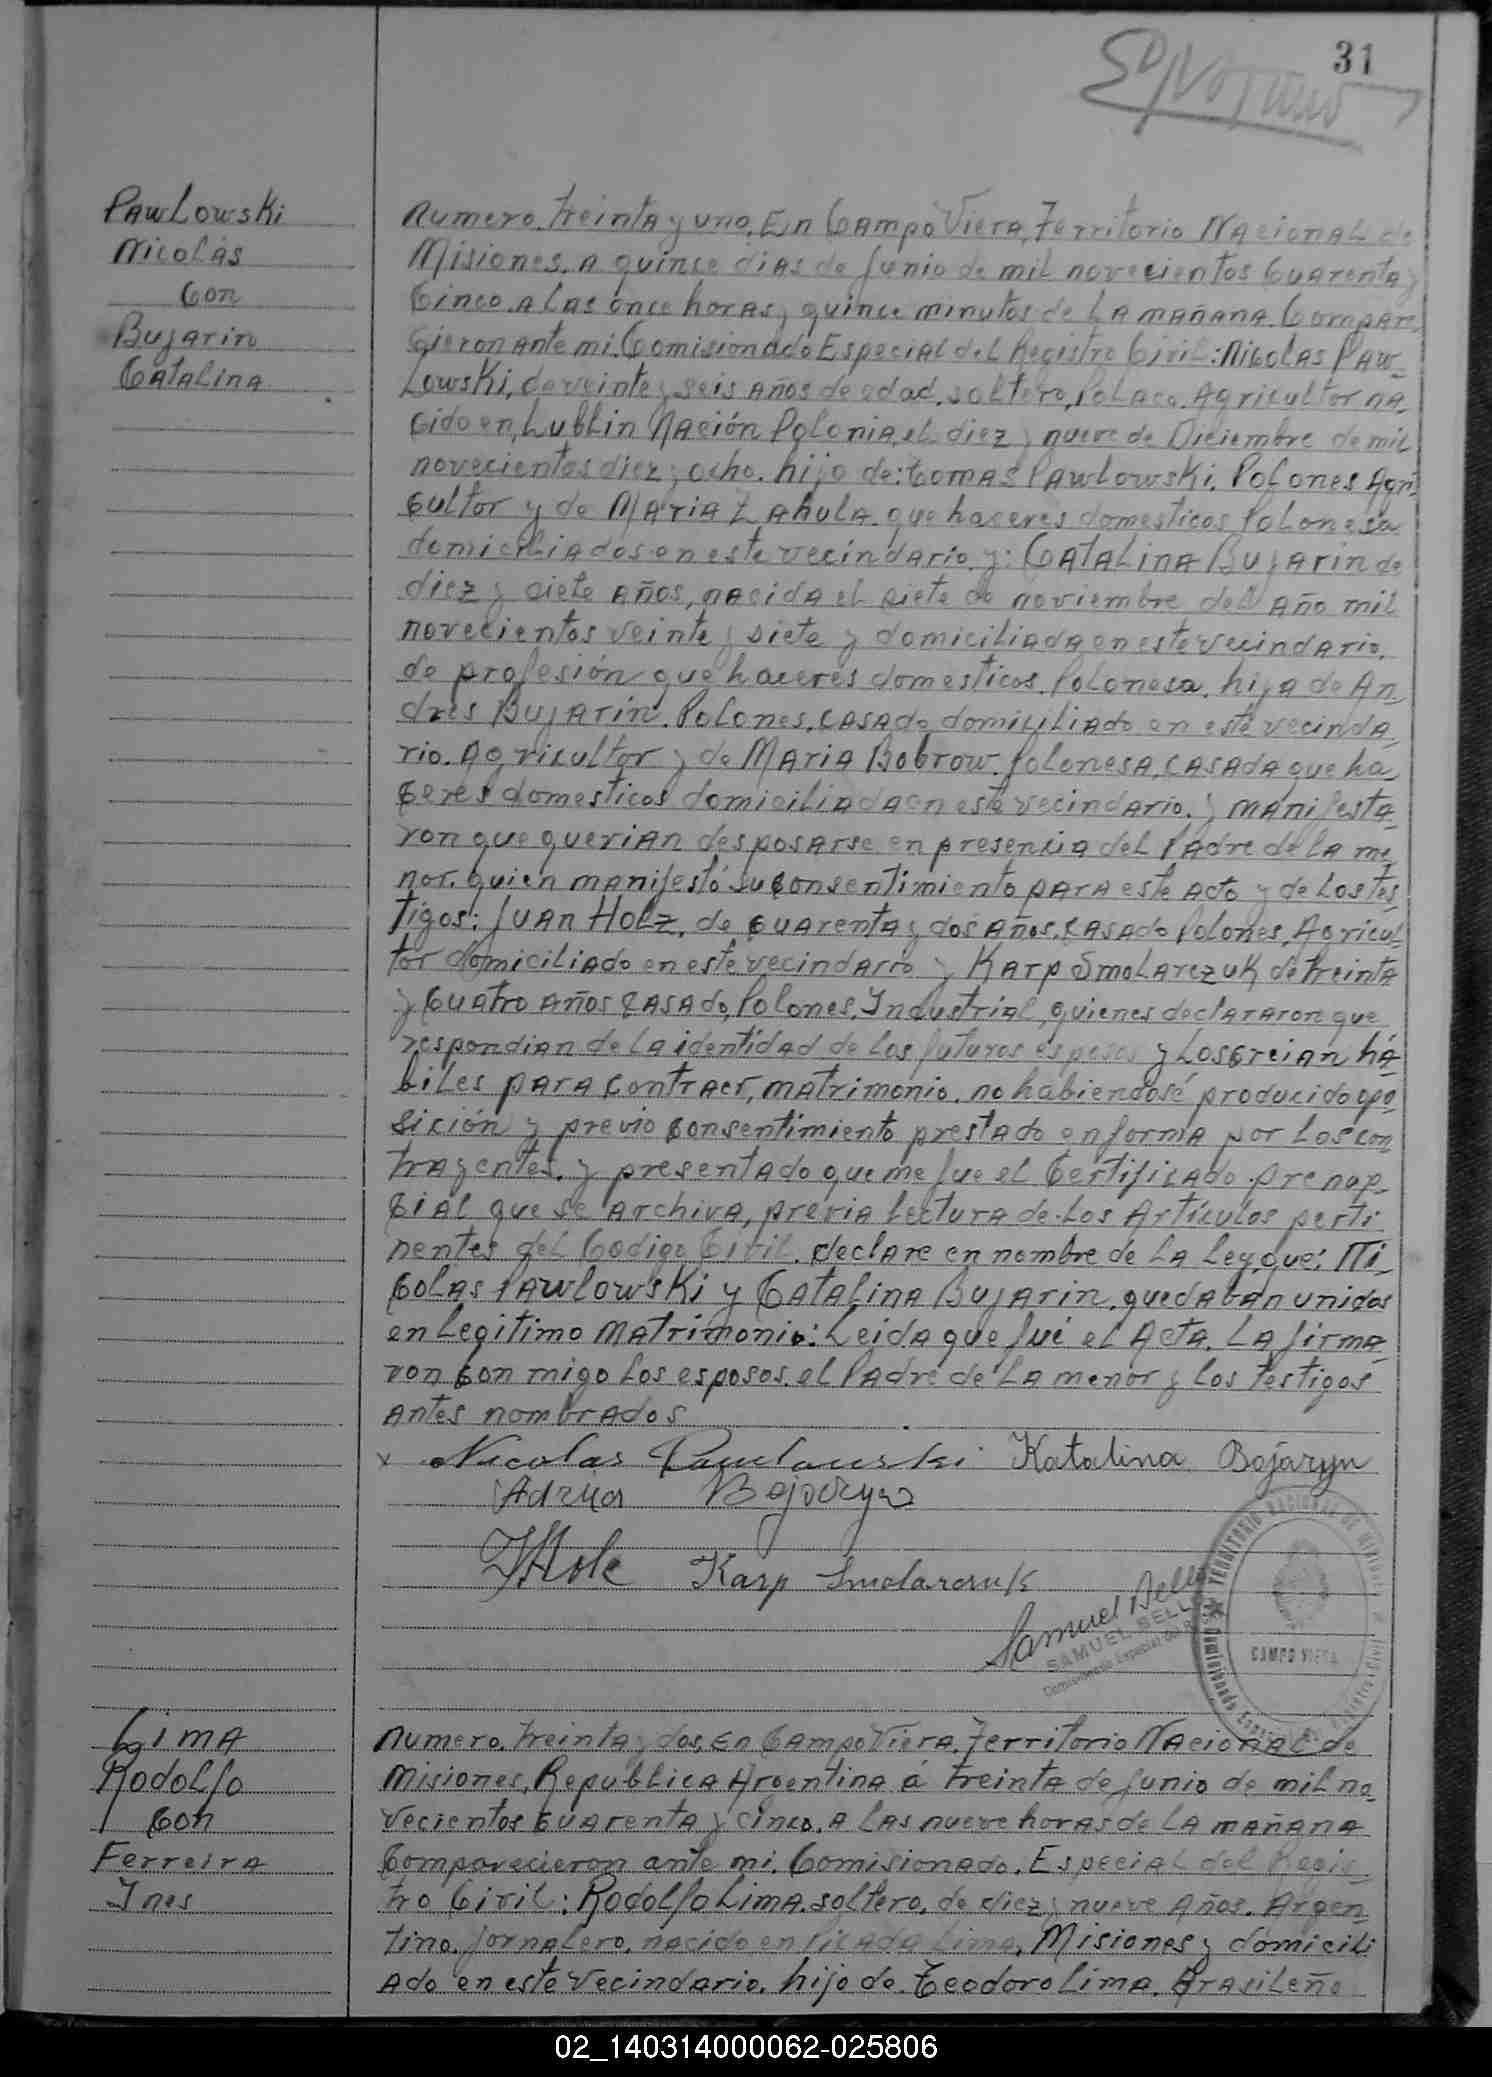 31
Pawlowski
Nicolás
Con
Bujarin
Catalina
Numero, treinta y uno, En Campo Viera, Territorio Nacional de
Misiones, a quince dias de Junio de mil novecientos Cuarenta y
Cinco. a las once horas y quince minutos de la mañana. Compare_
cieron ante mi. Comisionado Especial del Registro Civil: Nicolas Paw_
Lowski, de veinte y seis años de edad, soltero, Polaco, Agricultor na_
cido en, Lublin Nación Polonia, el diez y nueve de Diciembre de mil
novecientos diez y ocho. hijo de: Tomas Pawlowski. Polones Agri_
cultor y de Maria Zahula. que haceres domesticos Polonesa
domiciliados en este vecindario. y: Catalina Bujarin de
diez y siete años, nacida el siete de noviembre del año mil
novecientos veinte y siete y domiciliada en este vecindario.
de profesión que haceres domesticos. Polonesa. hija de An_
dres Bujarin. Polones, casado domiciliado en este vecinda_
rio. Agricultor y de Maria Bobrow. Polonesa, casada que ha_
ceres domesticos domiciliada en este vecindario. y manifesta_
ron que querian desposarse en presencia del Padre de la me_
nor. quien manifestó su consentimiento para este acto y de los tes_
tigos: Juan Holz, de cuarenta y dos años, casado Polones, Agricul_
tor domiciliado en este vecindario y Karp Smolarczuk de treinta
y cuatro años casado, Polones, Industrial, quienes declararon que
respondian de la identidad de los futuros esposos y los creian há_
biles para contraer, matrimonio. no habiendosé producido opo_
sición y previo consentimiento prestado en forma por los con_
trayentes. y presentado que me fue el Certificado prenup_
cial que se archiva, previa lectura de los Artículos perti_
nentes del Codigo Civil. declare en nombre de la Ley, que: Ni_
colas Pawlowski y Catalina Bujarin, quedaban unidos
en legitimo matrimonio: Leida que fué el Acta. la firma_
ron con migo los esposos. el Padre de la menor y los testigos
antes nombrados
x Nicolas Pawlowski Katalina Bojaryn
Bojaryn
Karp Smolarczuk
Samuel Bell
SAMUEL BELL
Comisionado Especial del
TERRITORIO NACIONAL DE MISIONES
CAMPO VIERA
Lima
Rodolfo
Con
Ferreira
Ines
Numero, treinta y dos, En Campo Viera, Territorio Nacional de
Misiones, Republica Argentina á treinta de Junio de mil no_
vecientos cuarenta y cinco, a las nueve horas de la mañana
Comparecieron ante mi. Comisionado, Especial del Regis_
tro Civil: Rodolfo Lima. soltero, de diez y nueve años. Argen_
tino. Jornalero, nacido en Picada Lima, Misiones y domicili
ado en este vecindario. hijo de. Teodoro Lima. Brasileño
02_140314000062-025806